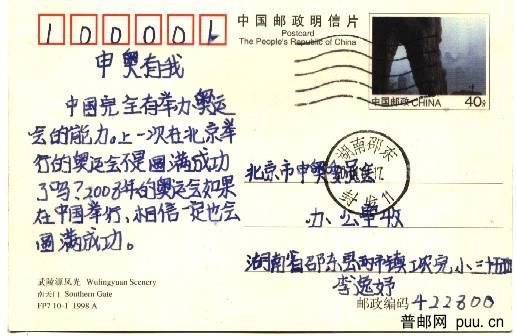 100001
中国邮政明信片
Postcard
The People's Republic of China
中国邮政 CHINA
40分
申奥有我
中国完全有举办奥运
会的能力。上一次在北京举
行的奥运会不是圆满成功
了吗?2008年的奥运会如果
在中国举行,相信一定也会
圆满成功。
湖南邵东
北京市申奥委员会
办公室收
湖南省邵东县两市镇工农完小
李逸妤
邮政编码 422800
武陵源风光 Wulingyuan Scenery
南天门 Southern Gate
FP7 10-1 1998 A
普邮网 puu.cn